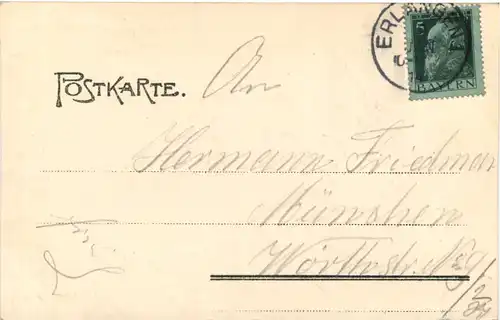 ERLANGEN
5
BAYERN
POSTKARTE.
An
Hermann Friedman
München
Wörthstr. No 9/